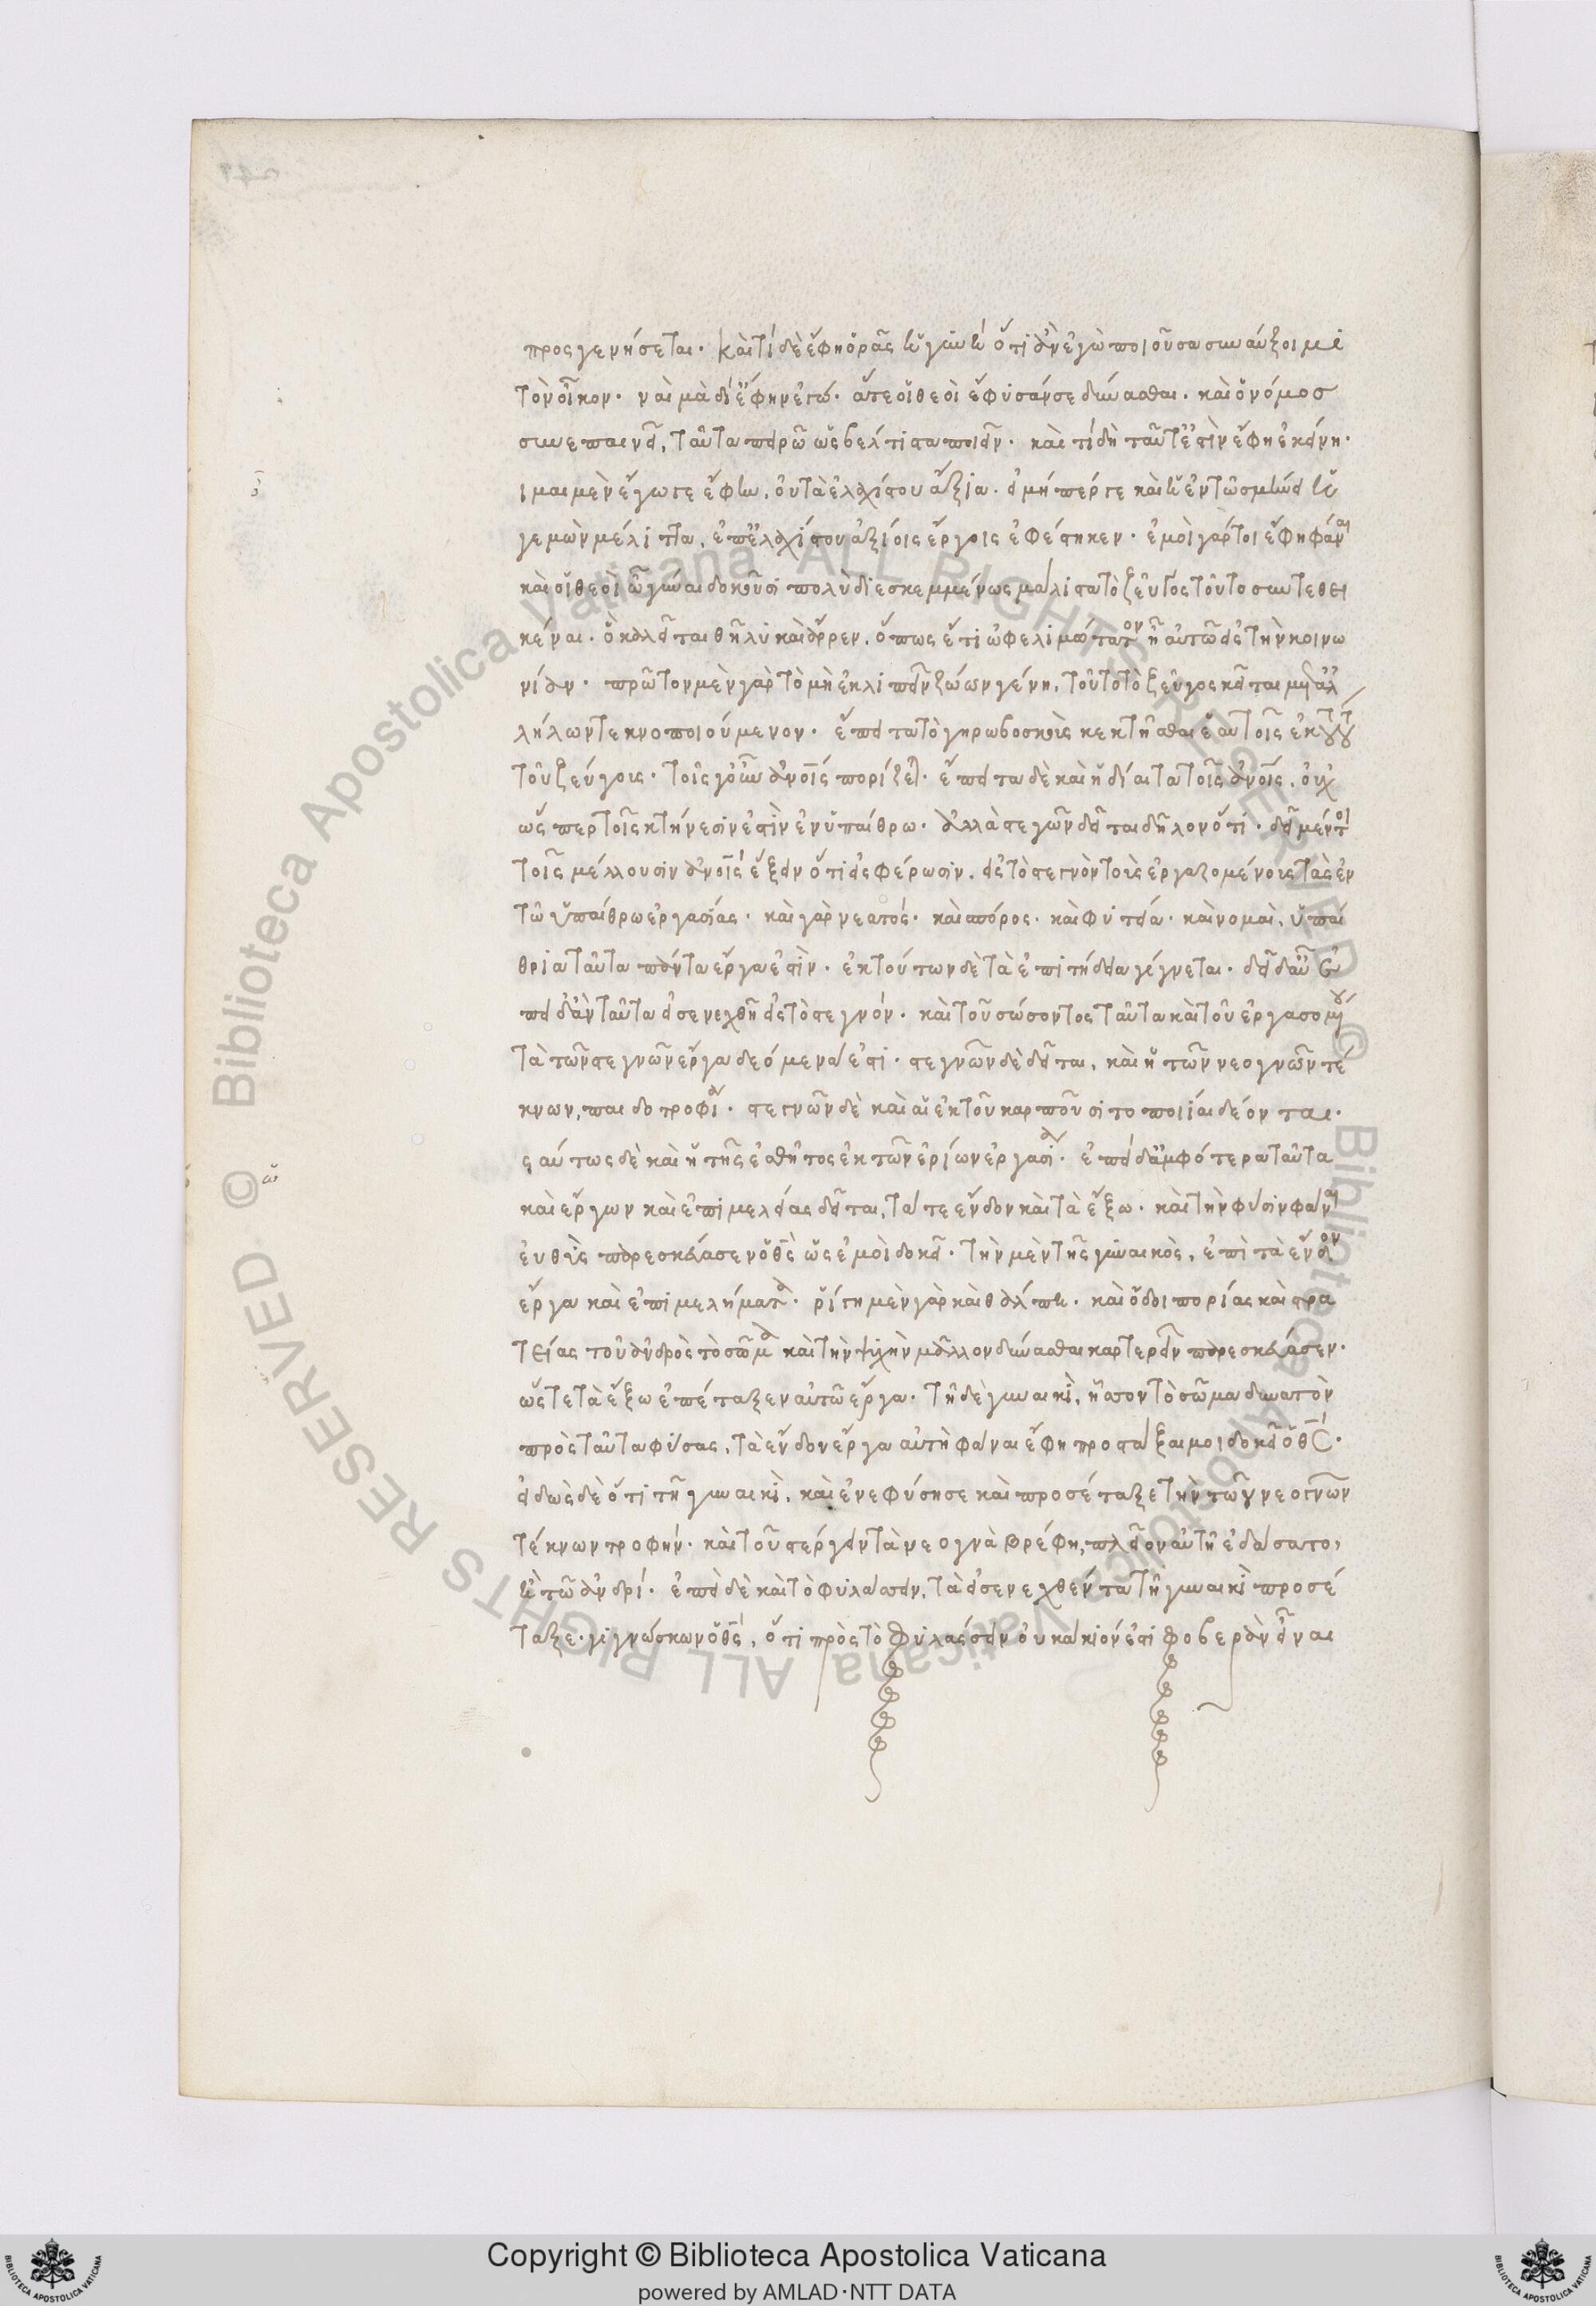 προσγενήσεται. καὶ τί δὲ ἔφη ὁρᾶς ἡ γυνή ὅτι ἂν ἐγὼ ποιοῦσα συναύξοιμι
τὸν οἶκον. ναὶ μὰ δί ἔφην ἐγώ. ἅτε οἱ θεοὶ ἔφυσάν σε δύνασθαι. καὶ ὁ νόμος
συνεπαινεῖ, ταῦτα πειρῶ ὡς βέλτιστα ποιεῖν. καὶ τί δὴ ταῦτ' ἐστὶν ἔφη ἐκείνη.
ἶμαι μὲν ἔγωγε ἔφην, οὐ τὰ ἐλαχίστου ἄξια. εἰ μή πέρ γε καὶ ἡ ἐν τῶ σμήνει ἡ
γεμὼν μέλιττα, ἐπ' ἐλαχίστου ἀξίοις ἔργοις ἐφέστηκεν. ἐμοὶ γάρ τοι ἔφη φάναι
καὶ οἱ θεοὶ ὦ γύναι δοκοῦσι πολὺ διεσκεμμένως μάλιστα τὸ ζεῦγος τοῦτο συντεθει
κέναι. ὃ καλεῖται θῆλυ καὶ ἄρρεν. ὅπως ὅτι ὠφελιμώτατον ἦ αὐτῶ εἰς τὴν κοινω
νίαν. πρῶτον μὲν γὰρ τὸ μὴ ἐκλιπεῖν ζώων γένη, τοῦτο τὸ ζεῦγος κεῖται μετ' ἀλ
λήλων τεκνοποιούμενον. ἔπειτα τὸ γηρωβοσκοὺς κεκτῆσθαι ἑαυτοῖς ἐκ τούτου
τοῦ ζεύγους. τοῖς γοῦν ἀνοις πορίζεται. ἔπειτα δὲ καὶ ἡ δίαιτα τοῖς ἀνοις, οὐχ
ὥσπερ τοῖς κτήνεσίν ἐστιν ἐν ὑπαίθρω. ἀλλὰ στεγῶν δεῖται δῆλον ὅτι. δεῖ μέντοι
τοῖς μέλλουσιν ἀνοις ἕξειν ὅτι εἰσφέρωσιν, εἰς τὸ στεγνὸν τοὺς ἐργαζομένους τὰς ἐν
τῶ ὑπαίθρω ἐργασίας. καὶ γὰρ νεατός. καὶ σπόρος. καὶ φυτεία. καὶ νομαὶ, ὑπαί
θρια ταῦτα πάντα ἔργα ἐστίν. ἐκ τούτων δὲ τὰ ἐπιτήδεια γίγνεται. δεῖ δ' αὖ
πειδὰν ταῦτα εἰσενεχθῆ εἰς τὸ στεγνόν. καὶ τοῦ σώσοντος ταῦτα καὶ τοῦ ἐργασομένου
τὰ τῶν στεγνῶν ἔργα δεόμενά ἐστι. στεγνῶν δὲ δεῖται, καὶ ἡ τῶν νεογνῶν τέ
κνων, παιδοτροφία. στεγνῶν δὲ καὶ αἱ ἐκ τοῦ καρποῦ σιτοποιίαι δέονται.
ςαύτως δὲ καὶ ἡ τῆς ἐσθῆτος ἐκ τῶν ἐρίων ἐργασία. ἐπεὶ δ' ἀμφότερα ταῦτα
καὶ ἔργων καὶ ἐπιμελείας δεῖται, τά τε ἔνδον καὶ τὰ ἔξω. καὶ τὴν φύσιν φάναι
εὐθὺς παρεσκεύασεν ὁ θς ὡς ἐμοὶ δοκεῖ. τὴν μὲν τῆς γυναικὸς, ἐπὶ τὰ ἔνδον
ἔργα καὶ ἐπιμελήματα. ῥίγη μὲν γὰρ καὶ θάλπη. καὶ ὁδοιπορίας καὶ στρα
τείας τοῦ ἀνδρὸς τὸ σῶμα καὶ τὴν ψυχὴν μᾶλλον δύνασθαι καρτερεῖν παρεσκεύασεν.
ὥστε τὰ ἔξω ἐπέταξεν αὐτῶ ἔργα. τῆ δὲ γυναικὶ, ἧττον τὸ σῶμα δυνατὸν
πρὸς ταῦτα φύσας, τὰ ἔνδον ἔργα αὐτῆ φάναι ἔφη προστάξαι μοι δοκεῖ ὁ θς.
εἰδὼς δὲ ὅτι τῆ γυναικὶ, καὶ ἐνέφυσησε καὶ προσέταξε τὴν τῶν νεογνῶν
τέκνων τροφήν. καὶ τοῦ στέργειν τὰ νεογνὰ βρέφη, πλεῖον αὐτῆ ἐδάσατο,
ἢ τῶ ἀνδρί. ἐπεὶ δὲ καὶ τὸ φυλάττειν, τὰ εἰσενεχθέντα τῆ γυναικὶ προσέ
ταξε. γιγνώσκων ὁ θς, ὅτι πρὸς τὸ φυλάσσειν οὐ κάκιόν ἐστι φοβερὰν εἶναι